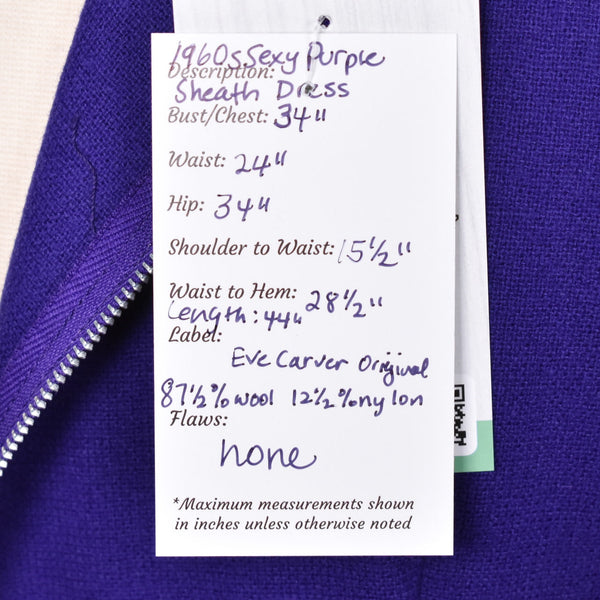 1960s Sexy Purple
Description:
Sheath Dress
Bust/Chest: 34"
Waist: 24"
Hip: 34"
Shoulder to Waist: 15 1/2"
Waist to Hem: 28 1/2"
Length: 44"
Label:
Eve Carver Original
87 1/2 % wool 12 1/2 % nylon
Flaws:
none
*Maximum measurements shown
in inches unless otherwise noted